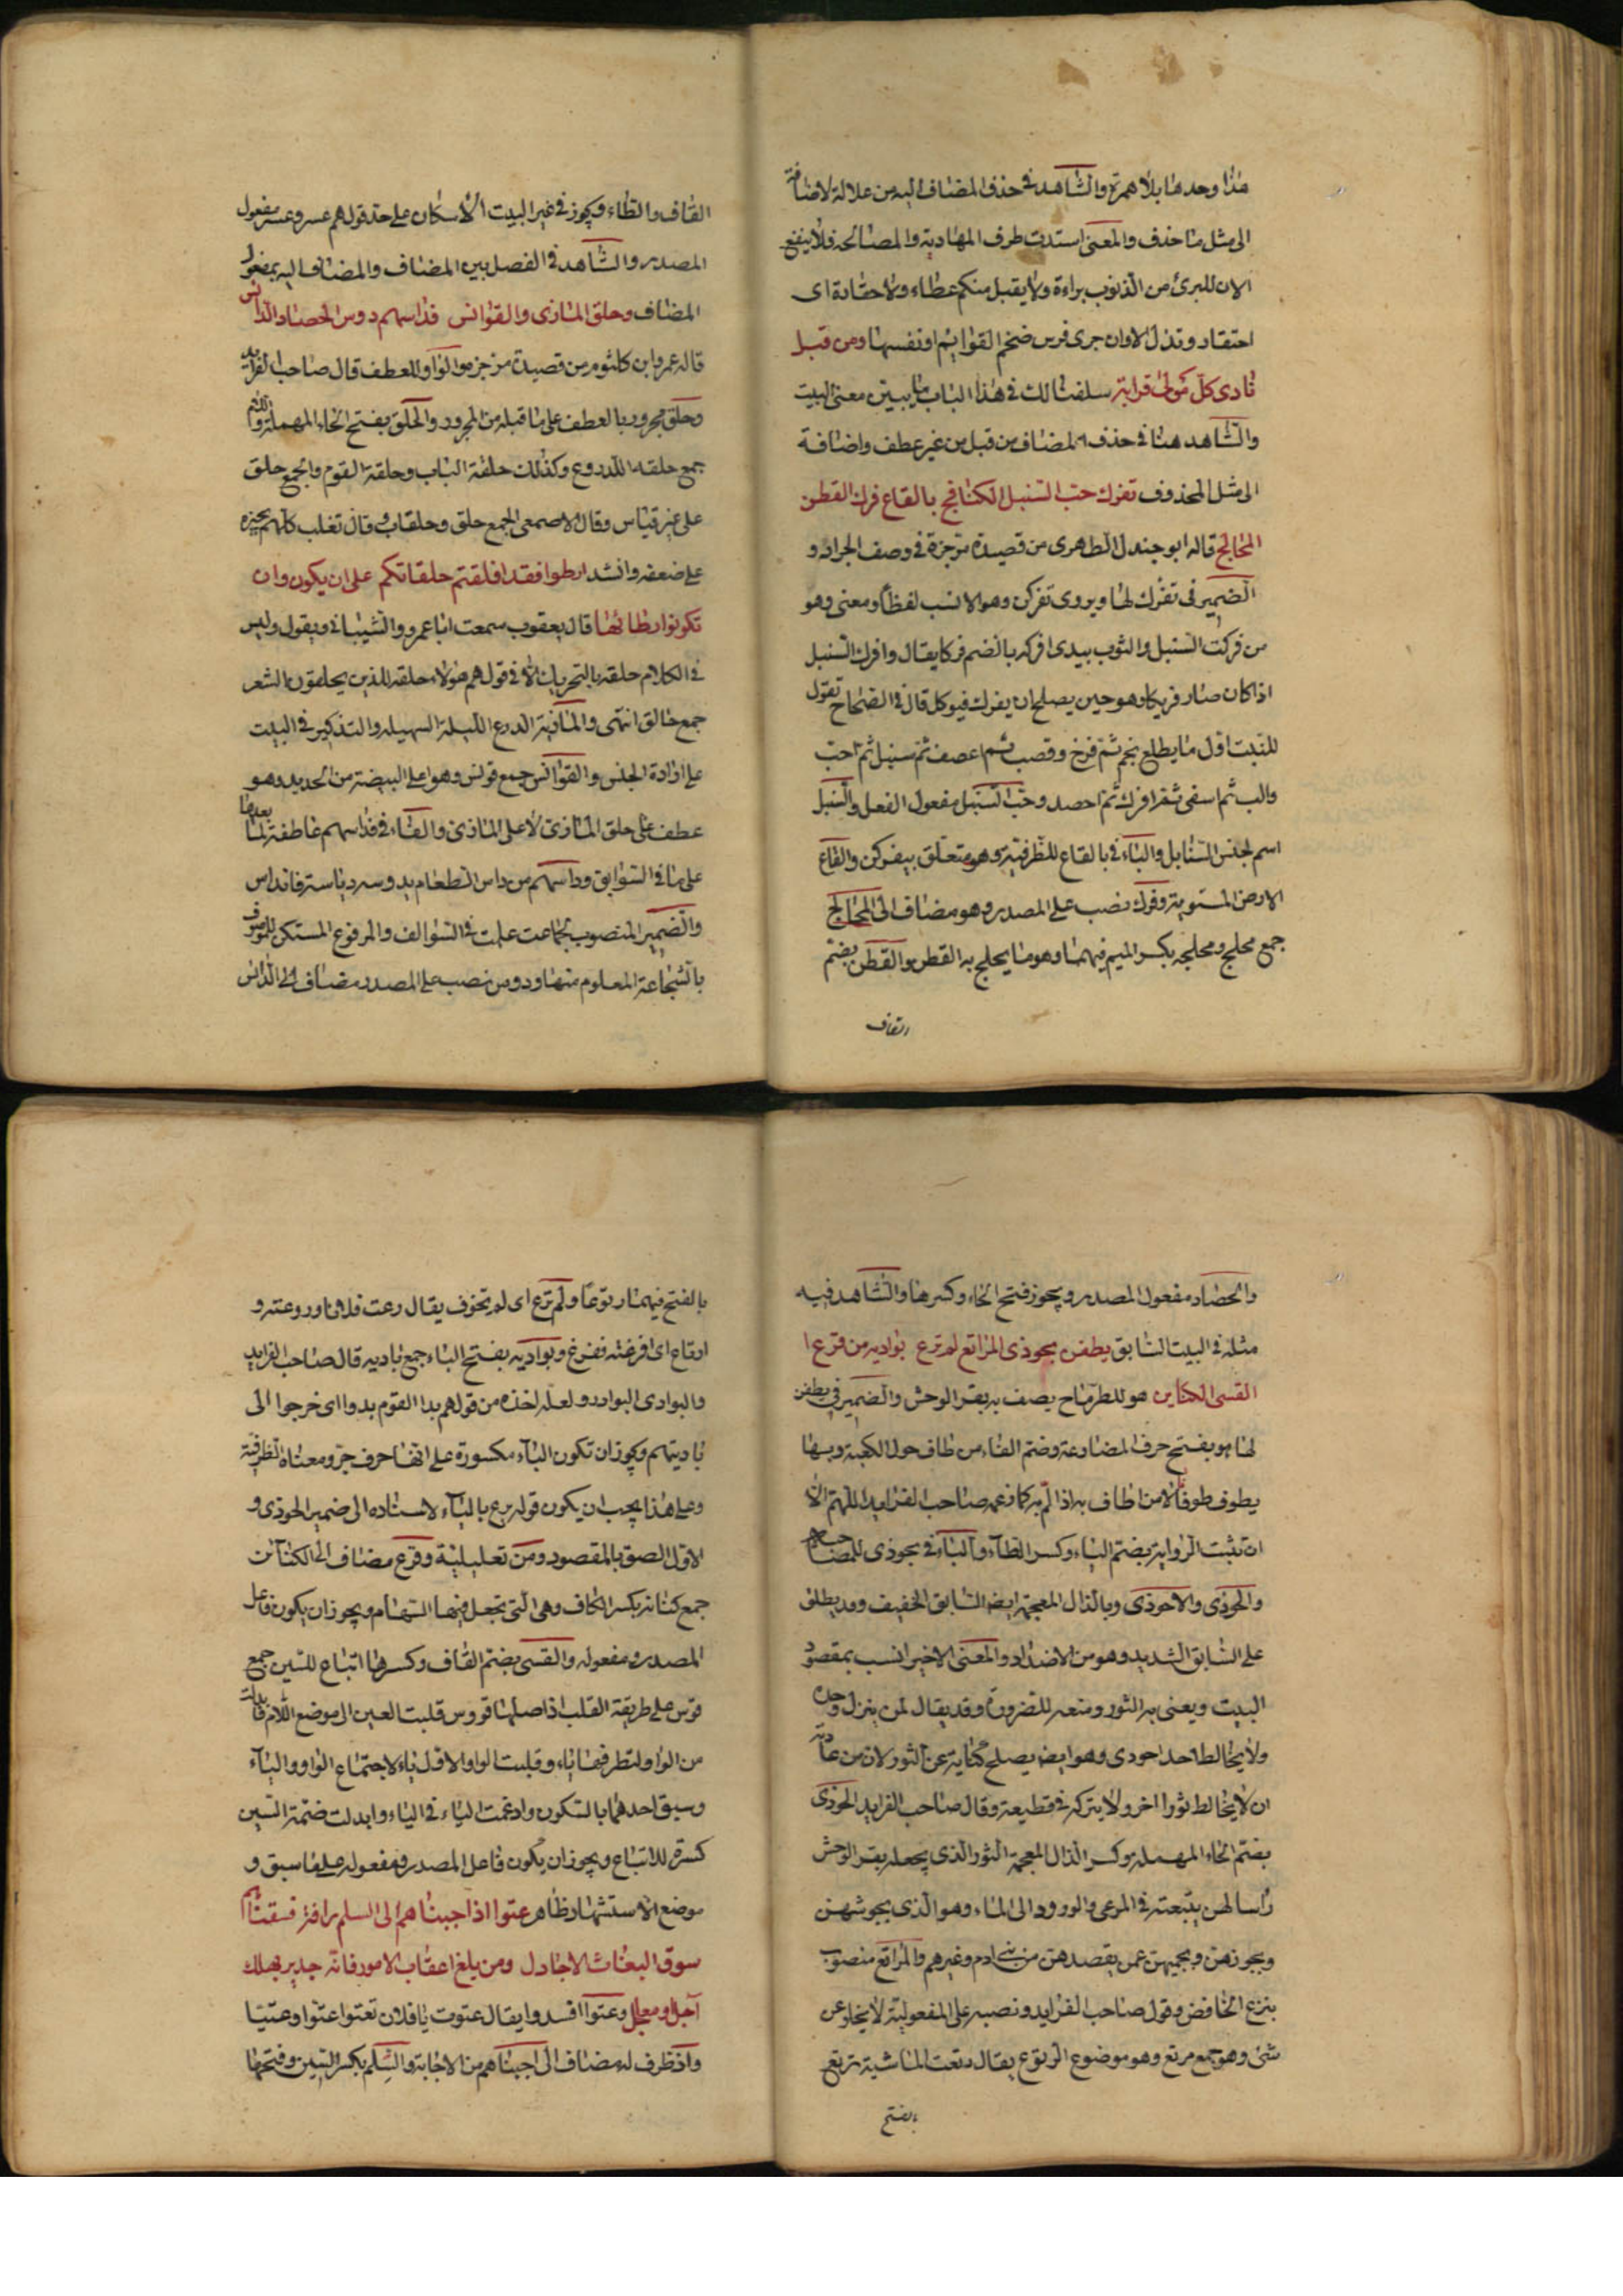 هذا وحدها بلا همزة والشاهد في حذف المضاف اليه من علالة لاضافة
الى مثل ما حذف والمعنى استدت طرف المهادية والمصالحه فلا ينفع
الان للبرئ من الذنوب براءة ولا يقبل منكم عطاء ولا حقادة اى
احتقاد وتذلل الاوان جرى فرس ضخم القوايم او نفسها ومن قبل
نادى كل مولى قرابة سلفنا لك في هذا الباب ما يبين معنى البيت
والشاهد هنا في حذف المضاف من قبل من غير عطف واضافة
الى مثل المحذوف تفرك حب السنبل الكنافج بالقاع فرك القطن
المحالج قاله ابو جندل الطهرى من قصيدة مرجزة في وصف الجراد و
الضمير في تفرك لها ويروى تفركن وهو الانسب لفظا ومعنى وهو
من فركت السنبل والثوب بيدى افركه بالضم فركا يقال وافرك السنبل
اذا كان صار فريكا وهو حين يصلح ان يفرك فيوكل قال في الصحاح تقول
للنبت اول ما يطلع نجم ثم فرخ وقصب ثم اعصف ثم سنبل ثم احب
والب ثم اسفى ثم افرك ثم احصد وحب السنبل مفعول الفعل والسنبل
اسم لجنس السنابل والباء في بالقاع للظرفية وهو متعلق بيفركن والقاع
الارض المستوية وفرك نصب على المصدر وهو مضاف الى المحالج
جمع محلج ومحلجه بكسر الميم فيهما وهو ما يحلج به القطن والقطن بضم
القاف
القاف والطاء ويجوز في غير البيت الاسكان على حد قولهم عسر وعسر مفعول
المصدر والشاهد في الفصل بين المضاف والمضاف اليه بمفعول
المضاف وحلق الماذى والقوانس فداسهم دوس الحصاد الدائس
قاله عمرو ابن كلثوم من قصيدة مرجزه والواو للعطف قال صاحب الفرايد
وحلق مجرور بالعطف على ما قبله من المجرور والحلق بفتح الحاء المهملة واللام
جمع حلقه للدروع وكذلك حلقة الباب وحلقة القوم والجمع حلق
على غير قياس وقال الاصمعى الجمع حلق وحلقات قال تغلب كلهم يجيزه
على ضعفه وانشد ارطوا فقد اقلقتم حلقاتكم على ان يكون وان
تكونوا رطائها قال يعقوب سمعت ابا عمرو والشيبانى ويقول وليس
في الكلام حلقه بالتحريك الا في قولهم هولاء حلقه للذين يحلقون الشعر
جمع حالق انتهى والماذية الدرع اللينة السهيله والتذكير في البيت
على ارادة الجنس والقوانس جمع قونس وهو اعلى البيضة من الحديد وهو
عطف على حلق الماذى لا على الماذى والفاء في فداسهم عاطفة لما بعدها
على ما في السوابق وداسهم من داس الطعام يدوسه دياسة فانداس
والضمير المنصوب لجماعت علمت في السوالف والمرفوع المستكن للموصوف
بالشجاعة المعلوم منها ودوس نصب على المصدر مضاف الى الدائس
والحصاد مفعول المصدر ويجوز فتح الحاء وكسرها والشاهد فيه
مثله في البيت السابق يطفن بحوذى المراتع لم ترع بواديه من قرع ا
القسى الكناين هو للطرماح يصف به بقر الوحش والضمير في يطفن
لها هو بفتح حرف المضارعة وضم الفاء من طاف حول الكعبة وبها
يطوف طوفا لا من اطاف به اذا الم به كما زعمه صاحب الفرايد اللهم الا
ان تثبت الرواية بضم الياء وكسر الطاء والباء في بحوذى للمصاحبة
والحوذى والاحوذى وبالذال المعجمة ايضا السابق الخفيف وقد يطلق
على السابق الشديد وهو من الاضداد والمعنى الاخير انسب بمقصود
البيت ويعنى به الثور ومنعه للضرورة وقد يقال لمن ينزل وحده
ولا يخالط احدا حودى وهو ايضا يصلح كناية عن الثور لان من عادته
ان لا يخالط ثورا اخر ولا يتركه في قطيعه وقال صاحب الفرايد الحوذى
بضم الحاء المهمله وكسر الذال المعجمة الثور الذى يجعله بقر الوحش
راسا لهن يتبعنه في المرعى والورود الى الماء وهو الذى يحوشهن
ويحوزهن ويحميهن عمن يقصدهن من بنى ادم وغيرهم والمراتع منصوب
بنزع الخافض وقول صاحب الفرايد ونصبه على المفعولية لا يخلو عن
شئ وهو جمع مرتع وهو موضع الرتوع يقال رتعت الماشية ترتع
بالفتح
بالفتح فيهما رتوعا ولم ترع اى لم تخوف يقال رعت فلانا وروعته و
ارتاع اى افزعته ففزع وبواديه بفتح الباء جمع باديه قال صاحب الفرايد
والبوادى البوادر ولعله اخذه من قولهم بدا القوم بدوا اى خرجوا الى
باديتهم ويجوز ان تكون الباء مكسورة على انها حرف جر ومعناه الظرفية
وعلى هذا يجب ان يكون قوله يرع بالياء لاسناده الى ضمير الحوذى و
الاول الصق بالمقصود ومن تعليلية وقرع مضاف الى الكنائن
جمع كنانه بكسر الكاف وهى التى تجعل فيها السهام ويجوز ان يكون فاعل
المصدر ومفعوله والقسى بضم القاف وكسرها اتباع للسين جمع
قوس على طريقة القلب اذ اصلها قووس قلبت العين الى موضع اللام فابدلت
من الواو لتطرفها ياء وقلبت الواو الاول ياء لاجتماع الواو والياء
وسبق احدهما بالسكون وادغمت الياء في الياء وابدلت ضمة السين
كسرة للاتباع ويجوز ان يكون فاعل المصدر ومفعوله على ما سبق و
موضع الاستشهاد ظاهر عتوا اذ اجبناهم الى السلم رافة فسقناهم
سوق البغاث الاجادل ومن يلغ اعقاب الامور فانه جدير بهلك
آجل او معاجل وعتوا افسدوا يقال عتوت يا فلان تعتوا عتوا وعتيا
واذ ظرف له مضاف الى اجبناهم من الاجابة والسلم بكسر السين وفتحها